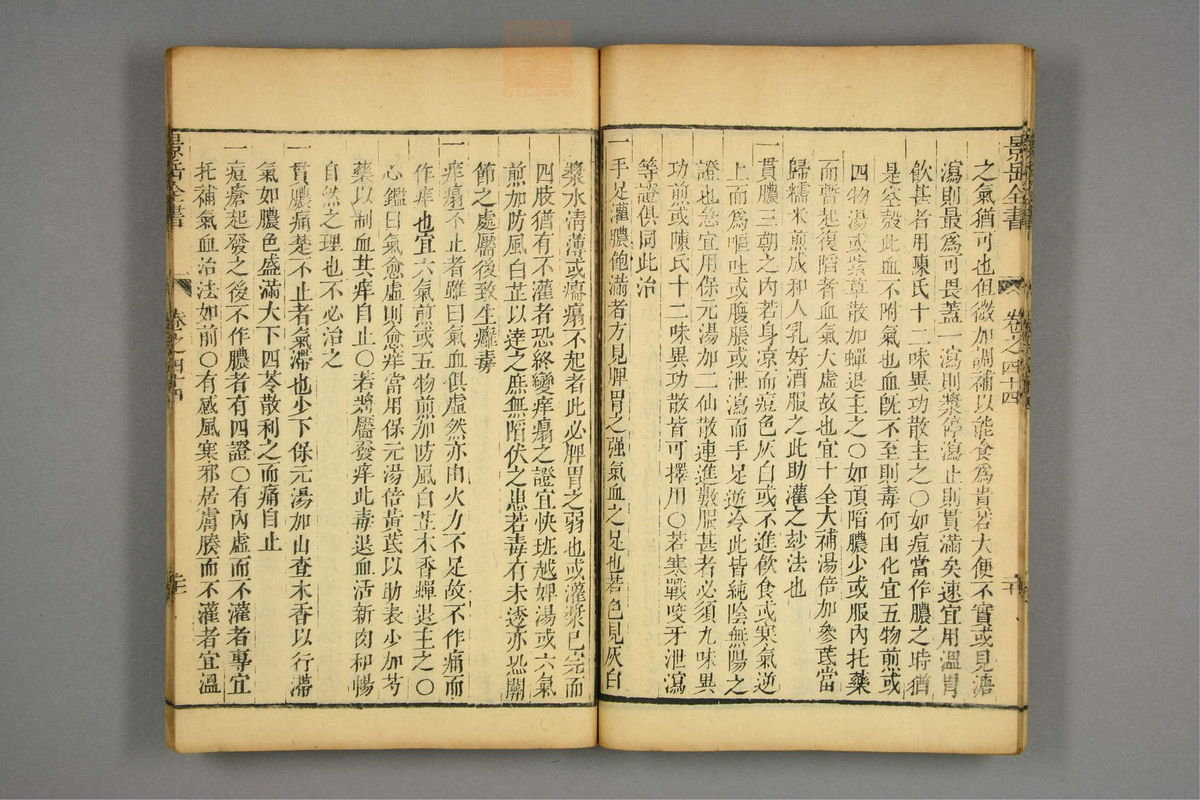 景岳全書
卷之四十四
之氣猶可也但微加調補以能食爲貴若大便不實或見溏
瀉則最爲可畏蓋一瀉則漿停瀉止則貫滿矣速宜用溫胃
飲甚者用陳氏十二味異功散主之○如痘當作膿之時猶
是空殼此血不附氣也血既不至則毒何由化宜五物煎或
四物湯或紫草散加蟬退主之○如頂陷膿少或服內托藥
而暫起復陷者血氣大虛故也宜十全大補湯倍加參芪當
歸糯米煎成和人乳好酒服之此助灌之玅法也
一貫膿三朝之內若身凉而痘色灰白或不進飲食或寒氣逆
上而爲嘔吐或腹脹或泄瀉而手足逆冷此皆純陰無陽之
證也急宜用保元湯加二仙散連進數服甚者必須九味異
功煎或陳氏十二味異功散皆可擇用○若寒戰咬牙泄瀉
等證俱同此治
一手足灌膿飽滿者方見脾胃之强氣血之足也若色見灰白
漿水清薄或癟瘍不起者此必脾胃之弱也或灌漿已完而
四肢猶有不灌者恐終變痒瘍之證宜快班越婢湯或六氣
煎加防風白芷以達之庶無陷伏之患若毒有未透亦恐關
節之處靨後致生癰毒
一痒瘍不止者雖曰氣血俱虛然亦由火力不足故不作痛而
作痒也宜六氣煎或五物煎加防風白芷木香蟬退主之○
心鑑曰氣愈虛則愈痒當用保元湯倍黃芪以助表少加芍
藥以制血其痒自止○若將靨發痒此毒退血活新肉和暢
自然之理也不必治之
一貫膿痛楚不止者氣滯也少下保元湯加山查木香以行滯
氣如膿色盛滿大下四苓散利之而痛自止
一痘瘡起發之後不作膿者有四證○有內虛而不灌者專宜
托補氣血治法如前○有感風寒邪居膚腠而不灌者宜溫
景岳全書
卷之四十四